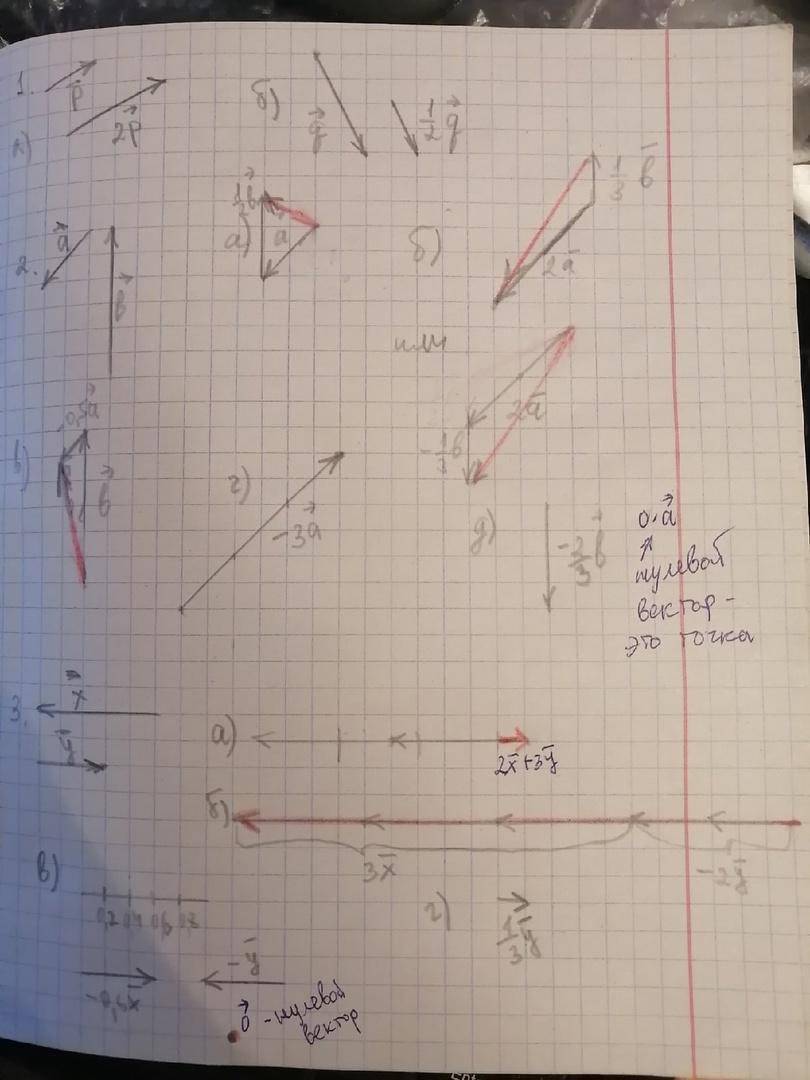 1. p⃗
а) 2p⃗
б) q⃗ ½q⃗
2. a⃗ b⃗
а) ½b⃗ a⃗
б) 2a̅ ⅓b̅
или
2a̅ -⅓b
в) 0,5a⃗ b⃗
г) -3a⃗
д) -⅔b⃗
0·a⃗
↑
нулевой
вектор-
это точка
3. x⃗
y̅
а) 2x̅+3y̅
б) 3x̅ -2y̅
в) 0,2 0,4 0,6 0,8
-0,6x̅ -y̅
0⃗ - нулевой
вектор
г) ⅓y̅